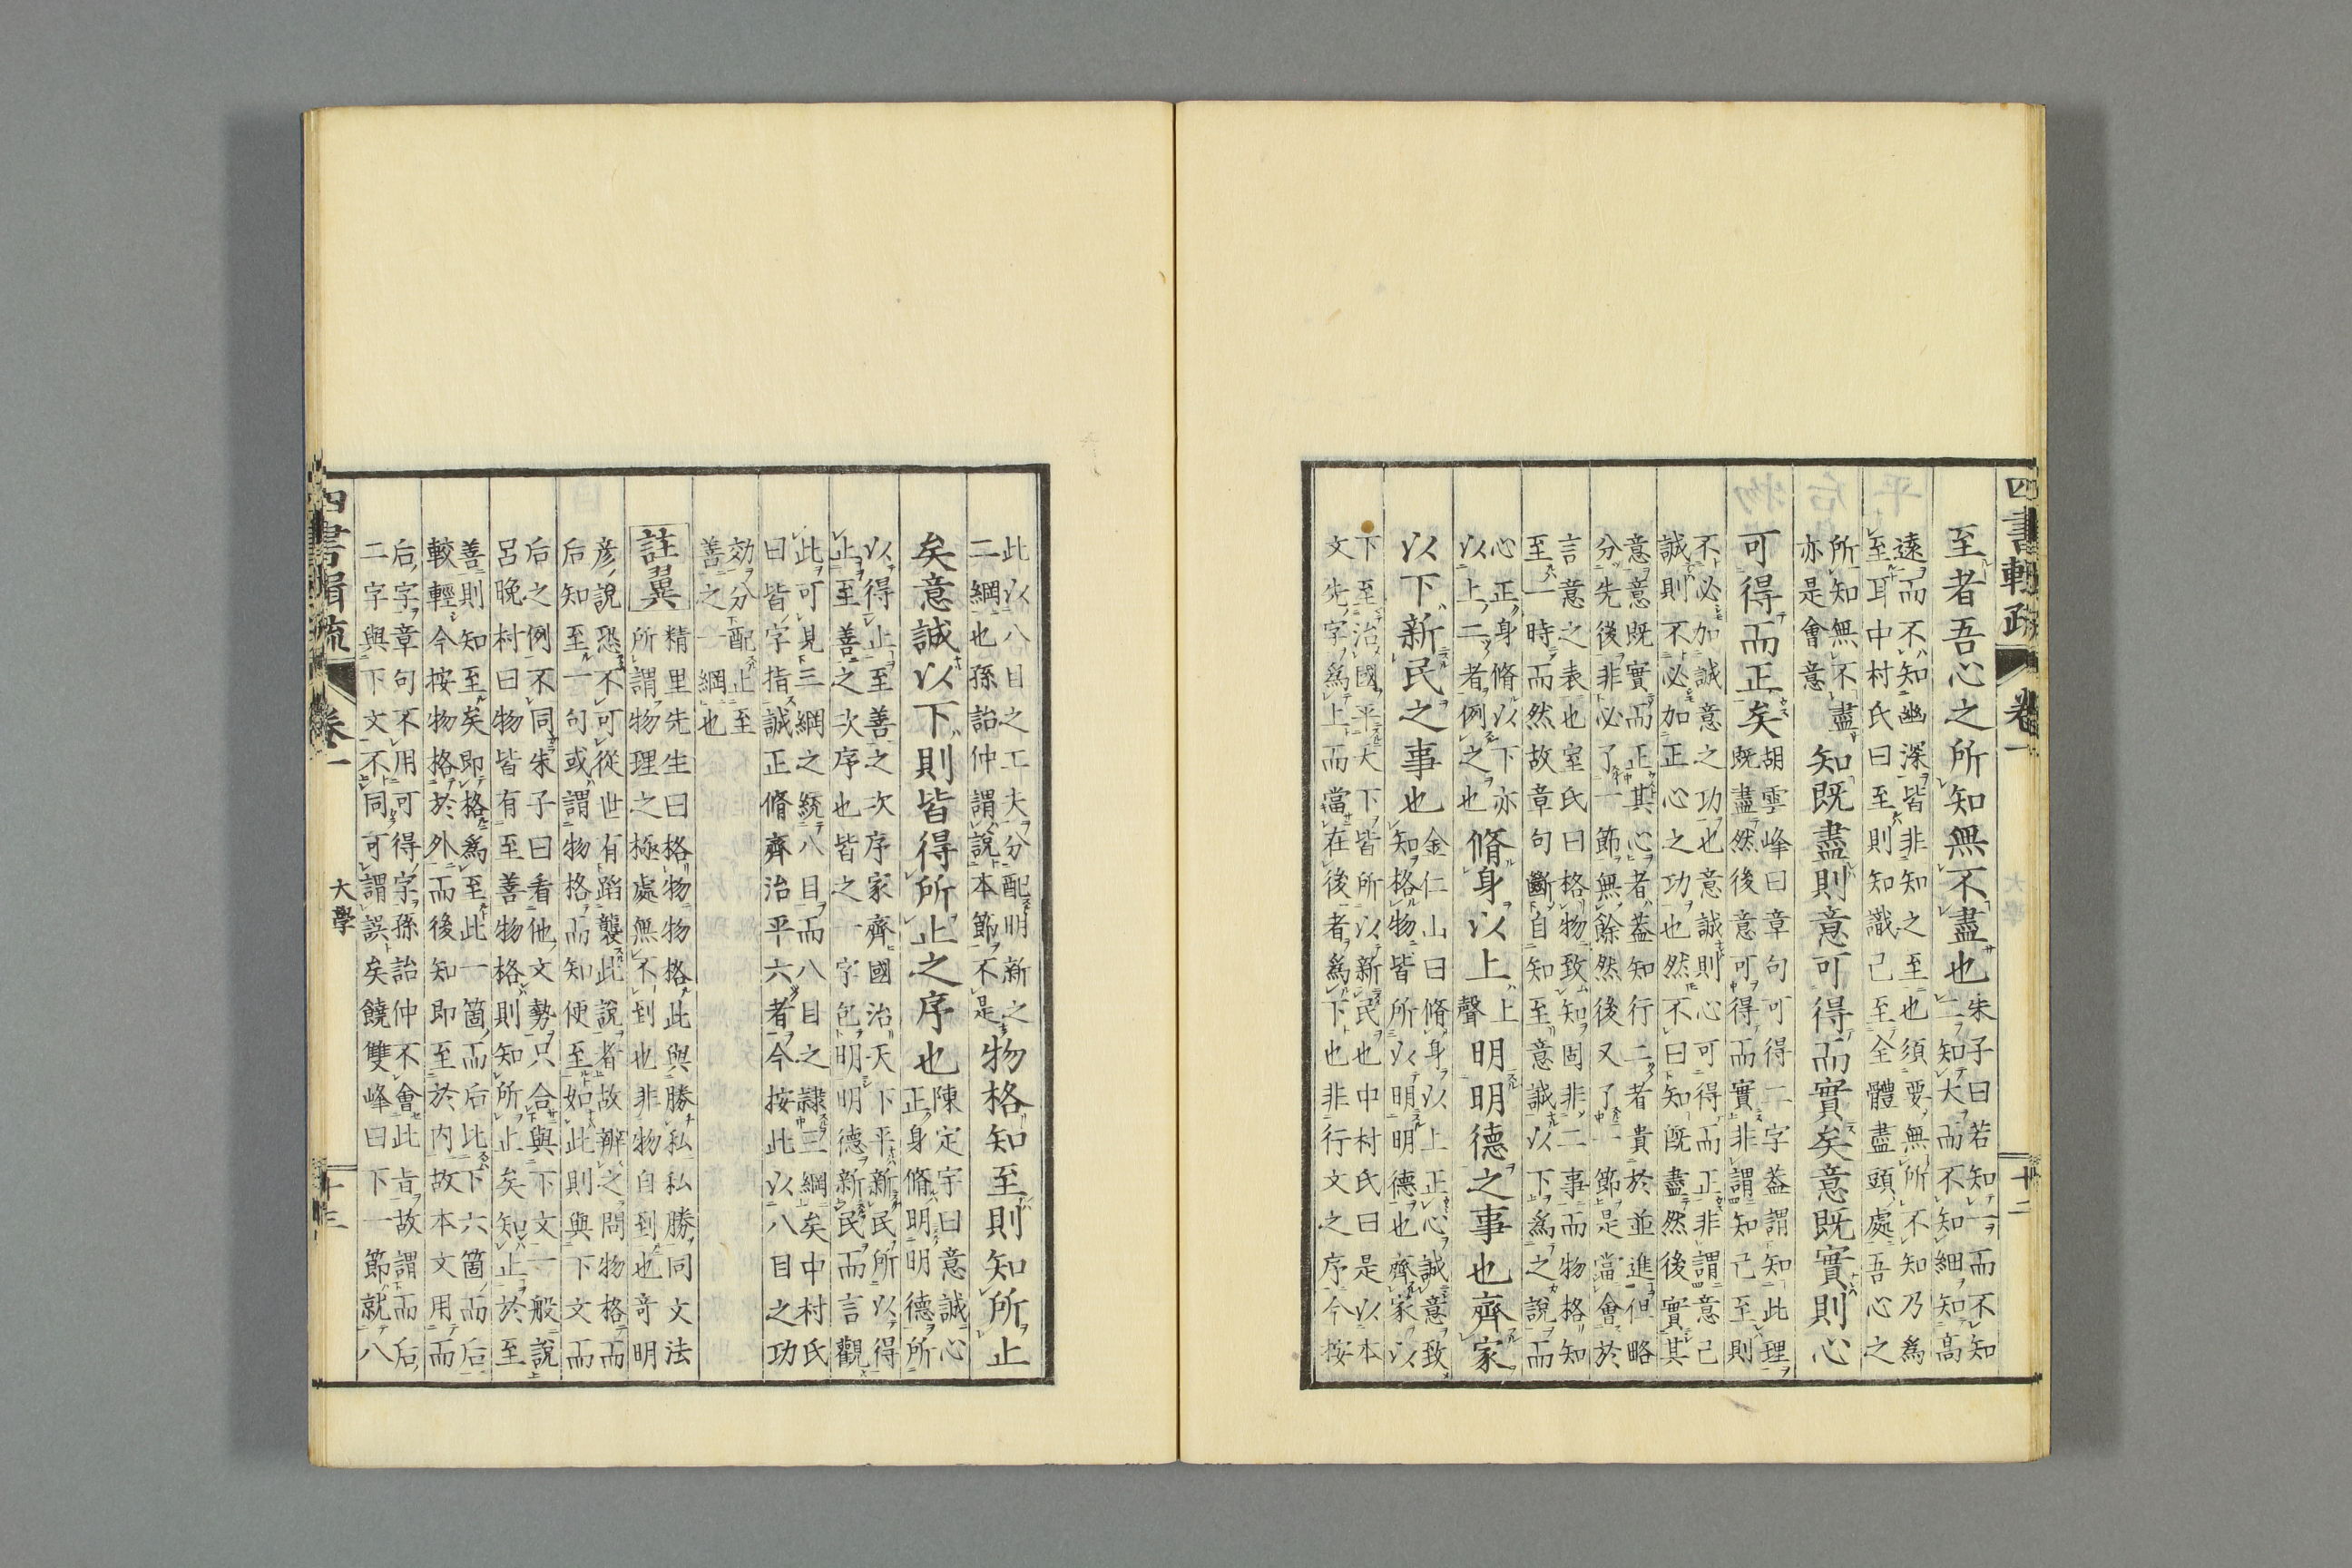 四書輯疏 卷一 十二
至者吾心之所知無不盡也
朱子曰若知一而不知
二知大而不知細知高
遠而不知幽深皆非知之至也須要無所不知乃爲
至耳中村氏曰至則知識已至全體盡頭處吾心之
所知無不盡
亦是會意
知既盡則意可得而實矣意既實則心
可得而正矣
胡雲峰曰章句可得二字蓋謂知此理
既盡然後意可得而實非謂知已至則
不必加誠意之功也意誠則心可得而正非謂意已
誠則不必加正心之功也然不曰知既盡然後實其
意意既實而正其心者蓋知行二者貴於並進但略
分先後非必了一節無餘然後又了一節是當會於
言意之表也室氏曰格物致知固非二事而物格知
至一時而然故章句斷自知至意誠以下爲之說而
心正身脩以下亦
以上二者例之也
脩身以上
上
聲
明明德之事也齊家
以下新民之事也
金仁山曰脩身以上正心誠意致
知格物皆所以明明德也齊家以
下至治國平天下皆所以新民也中村氏曰是以本
文先字爲上而當在後者爲下也非行文之序今按
此以八目之工夫分配明新之
二綱也孫詒仲謂說本節不是
物格知至則知所止
矣意誠以下則皆得所止之序也
陳定宇曰意誠心
正身脩明明德所
以得止至善之次序家齊國治天下平新民所以得
止至善之次序也皆之一字包明明德新民而言觀
此可見三綱之統八目而八目之隸三綱矣中村氏
曰皆字指誠正脩齊治平六者今按此以八目之功
効分配止至
善之一綱也
註翼
精里先生曰格物物格此與勝私私勝同文法
所謂物理之極處無不到也非物自到也奇明
彦說恐不可從世有蹈襲此說者故辨之問物格而
后知至一句或謂物格而知便至如此則與下文而
后之例不同朱子曰看他文勢只合與下文一般說
呂晩村曰物皆有至善物格則知所止矣知止於至
善則知至矣即格爲至此一箇而后比下六箇而后
較輕今按物格於外而後知即至於内故本文用而
后字章句不用可得字孫詒仲不會此旨故謂而后
二字與下文不同可謂誤矣饒雙峰曰下一節就八
四書輯疏 卷一 大學 十三